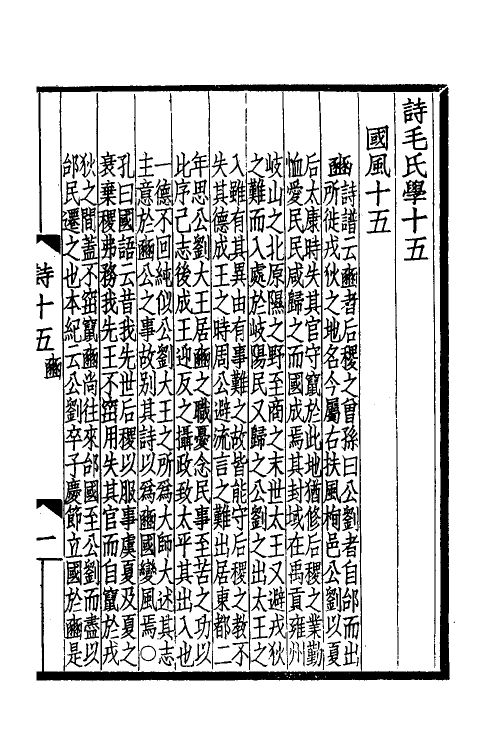 詩毛氏學十五
國風十五
豳詩譜云豳者后稷之曾孫曰公劉者自邰而出
所徙戎狄之地名今屬右扶風栒邑公劉以夏
后太康時失其官守竄於此地猶修后稷之業勤
恤愛民民咸歸之而國成焉其封域在禹貢雍州
岐山之北原隰之野至商之末世太王又避戎狄
之難而入處於岐陽民又歸之公劉之出太王之
入雖有其異由有事難之故皆能守后稷之教不
失其德成王之時周公避流言之難出居東都二
年思公劉大王居豳之職憂念民事至苦之功以
此序己志後成王迎反之攝政致太平其出入也
一德不回純似公劉大王之所爲大師大述其志
主意於豳公之事故別其詩以爲豳國變風焉○
孔曰國語云昔我先世后稷以服事虞夏及夏之
衰棄稷弗務我先王不窋用失其官而自竄於戎
狄之間蓋不窋竄豳尚往來邰國至公劉而盡以
邰民遷之也本紀云公劉卒子慶節立國於豳是
詩十五 豳
一